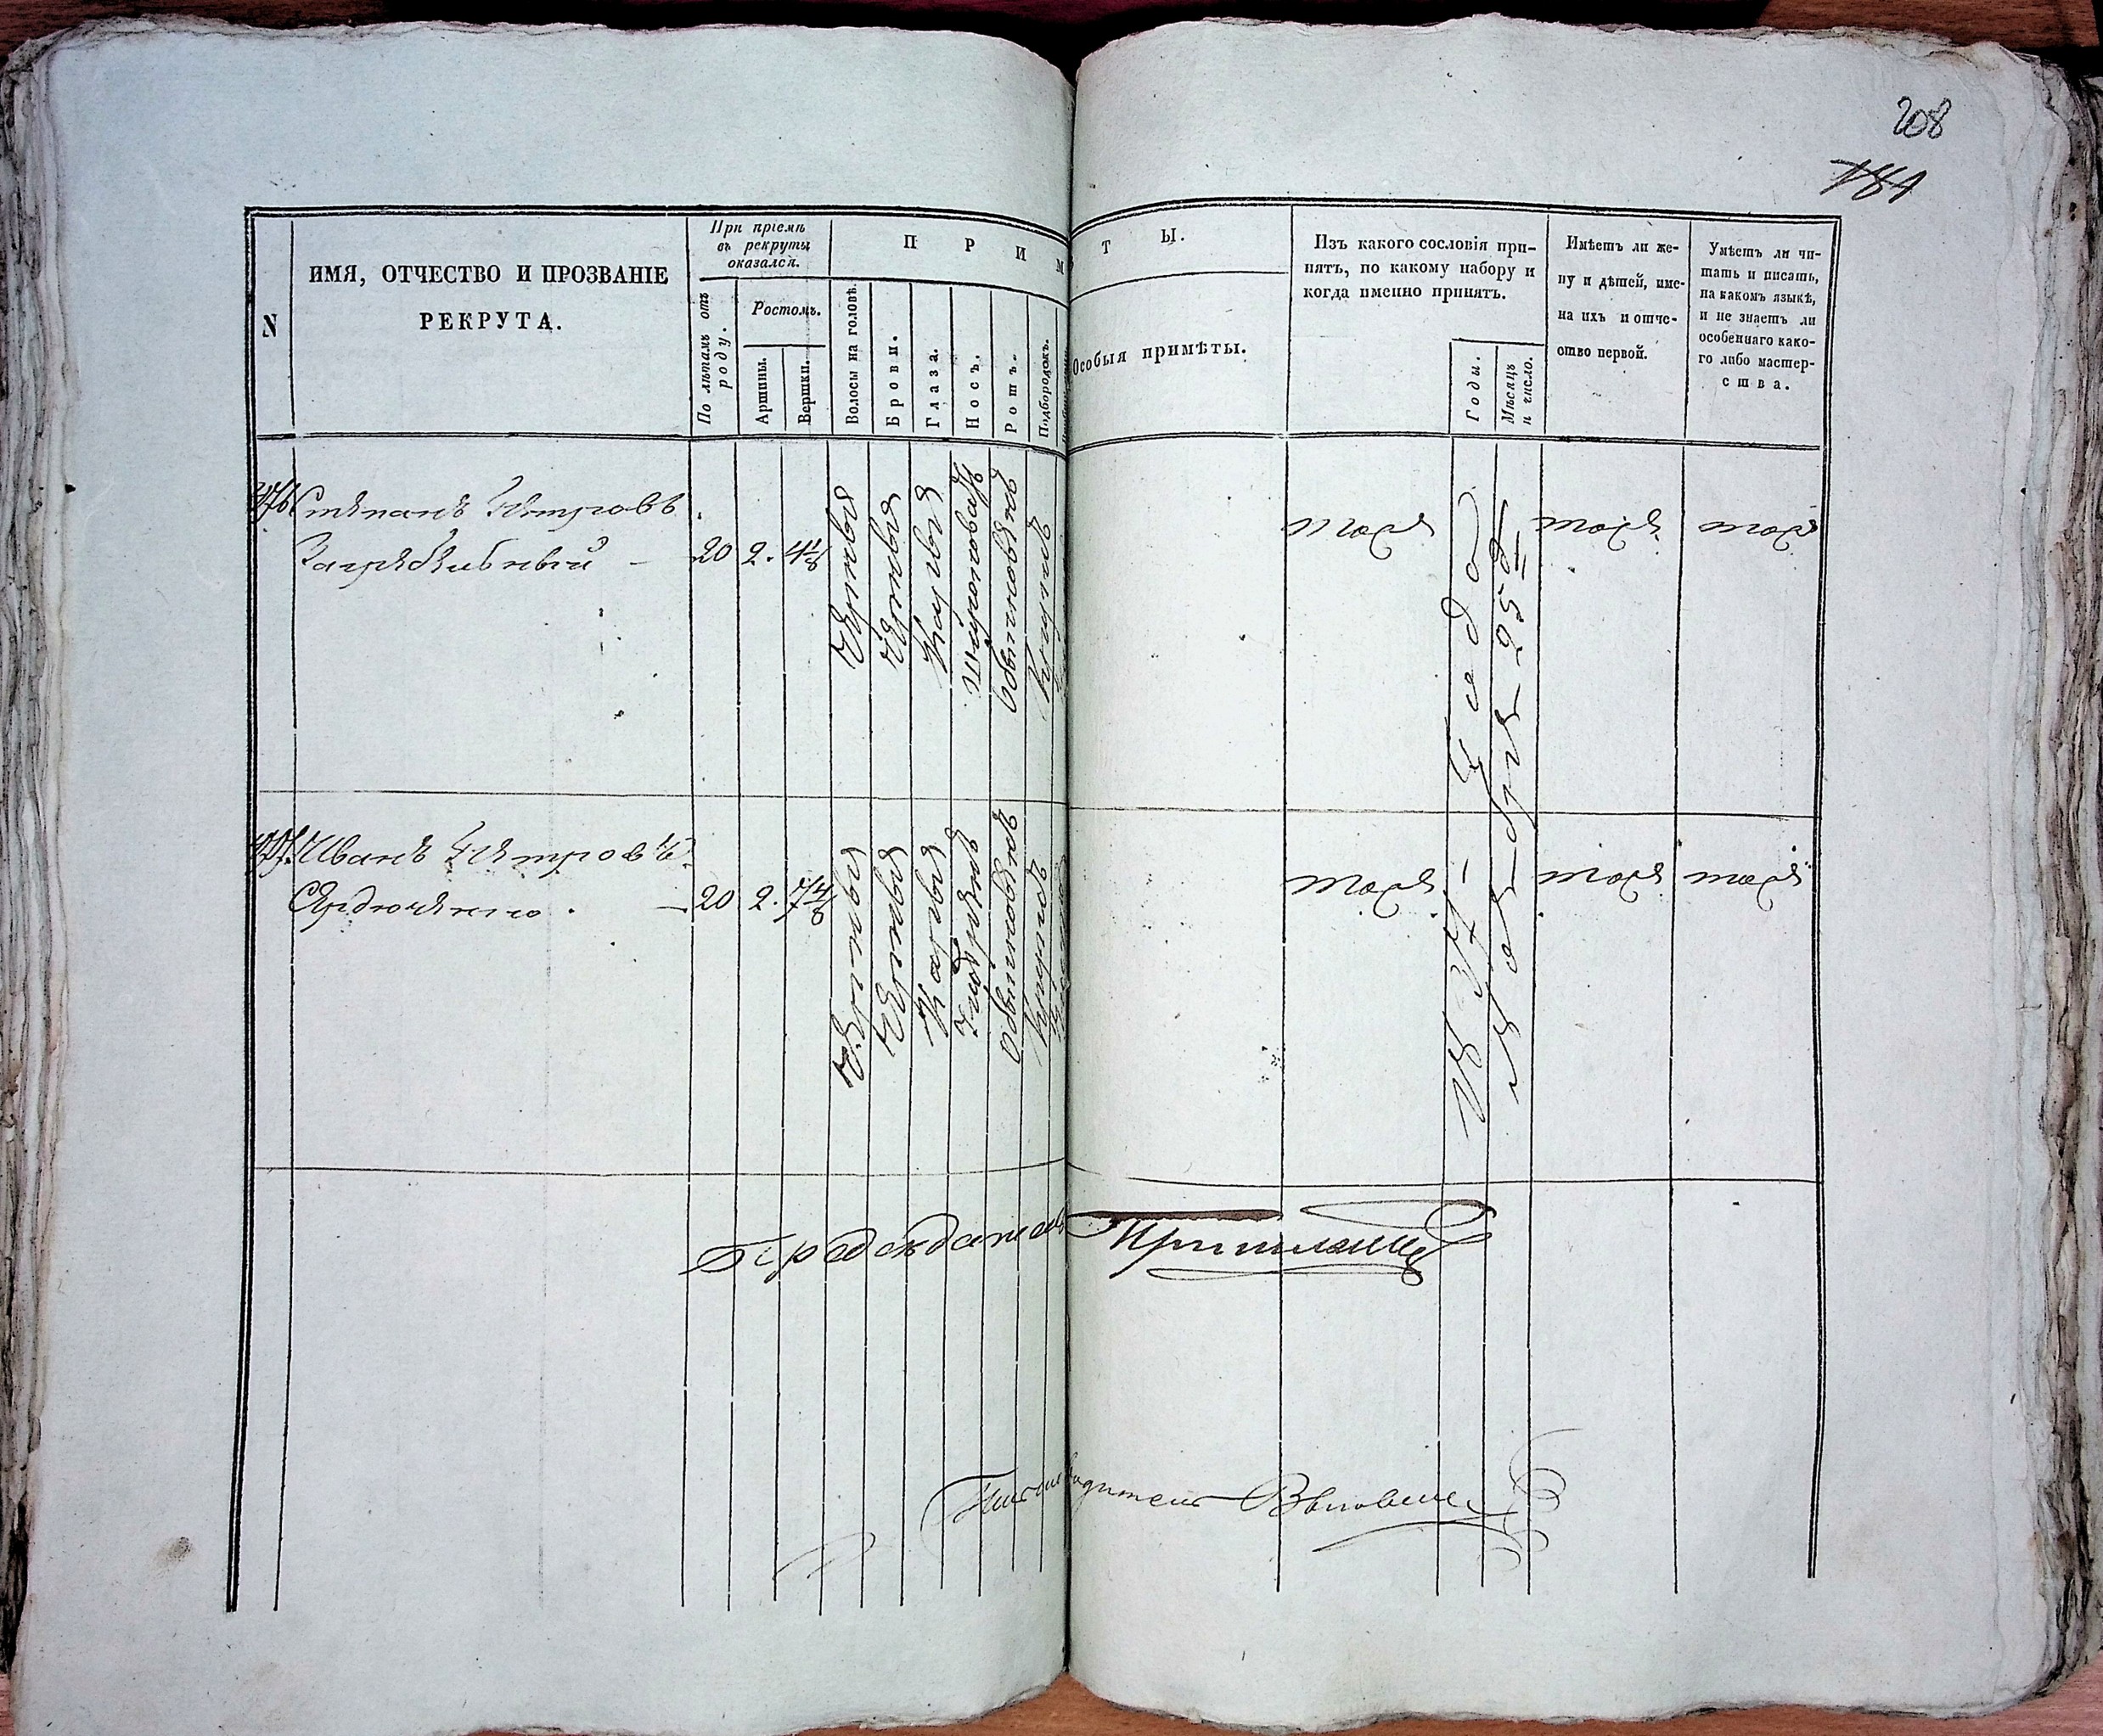 208
184
N
ИМЯ, ОТЧЕСТВО И ПРОЗВАНІЕ
РЕКРУТА.
При пріемѣ
въ рекруты
оказался.
По лѣтамъ отъ
роду.
Ростомъ.
Аршины.
Вершки.
П Р И М Ѣ Т Ы.
Волосы на головѣ.
Брови.
Глаза.
Носъ.
Ротъ.
Подбородокъ.
Особыя примѣты.
Изъ какого сословія при-
нятъ, по какому набору и
когда именно принятъ.
Годы.
Мѣсяцъ
и число.
Имѣетъ ли же-
ну и дѣтей, име-
на ихъ и отче-
ство первой.
Умѣетъ ли чи-
тать и писать,
на какомъ языкѣ,
и не знаетъ ли
особеннаго како-
го либо мастер-
ства.
Степанъ Петровъ
20 2. 4 1/8
черныя
черныя
карыя
широковатъ
обыкновененъ
круглъ
тоже
тоже
тоже
Иванъ Петровъ
Сердюченко.
20 2. 7 4/8
черныя
черныя
карыя
умѣренъ
обыкновененъ
круглъ
тоже
тоже
тоже
1837 года
Ноября 25 д
Предсѣдатель
Предводитель